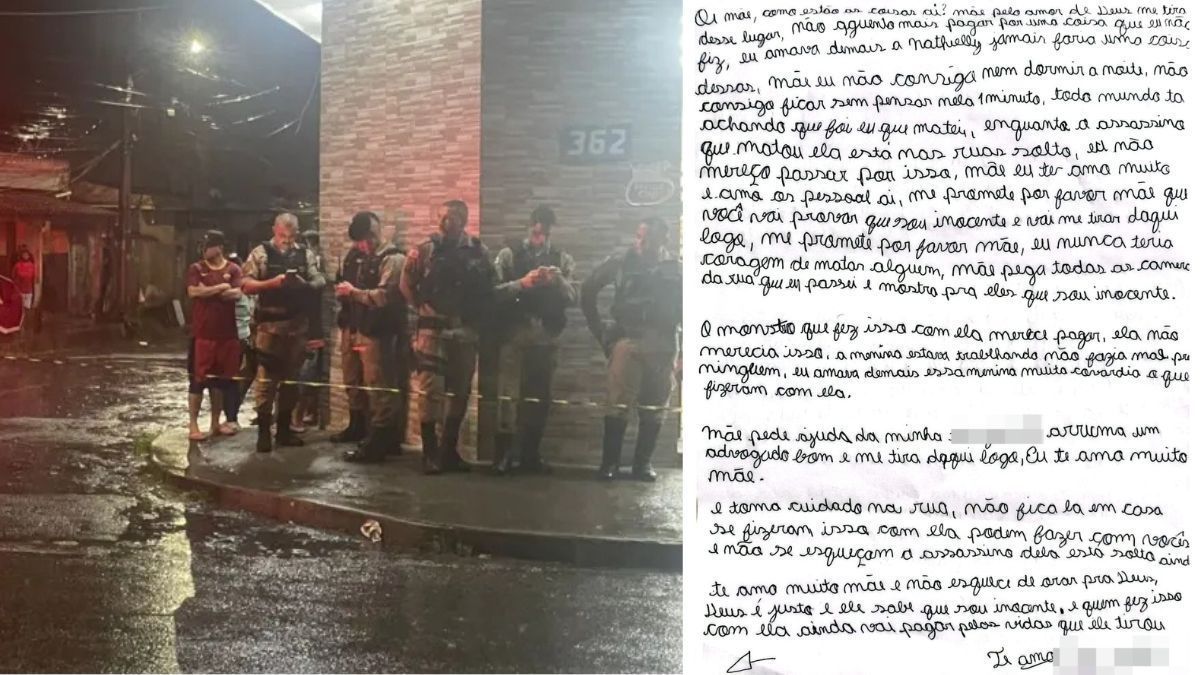 362
Oi mãe, como estão as coisas ai? mãe pelo amor de Deus me tira
desse lugar, não aguento mais pagar por uma coisa que eu não
fiz, eu amava demais a Nathielly jamais faria uma coisa
dessas, mãe eu não consigo nem dormir a noite, não
consigo ficar sem pensar nela 1 minuto, todo mundo ta
achando que foi eu que matei, enquanto o assassino
que matou ela está nas ruas solto, eu não
mereço passar por isso, mãe eu te amo muito
e amo os pessoal ai, me promete por favor mãe que
você vai provar que sou inocente e vai me tirar daqui
logo, me promete por favor mãe, eu nunca teria
coragem de matar alguem, mãe pega todas as camera
da rua que eu passei e mostra pra eles que sou inocente.
O monstro que fez isso com ela merece pagar, ela não
merecia isso, a menina estava trabalhando não fazia mal pra
ninguem, eu amava demais essa menina muita covardia o que
fizeram com ela.
Mãe pede ajuda da minha arruma um
advogado bom e me tira daqui logo, Eu te amo muito
mãe.
e toma cuidado na rua, não fica la em casa
se fizeram isso com ela podem fazer com vocês
e não se esqueçam o assassino dela está solto aind
te amo muito mãe e não esquece de orar pra Deus,
Deus é justo e ele sabe que sou inocente, e quem fez isso
com ela ainda vai pagar pelas vidas que ele tirou
Te amo